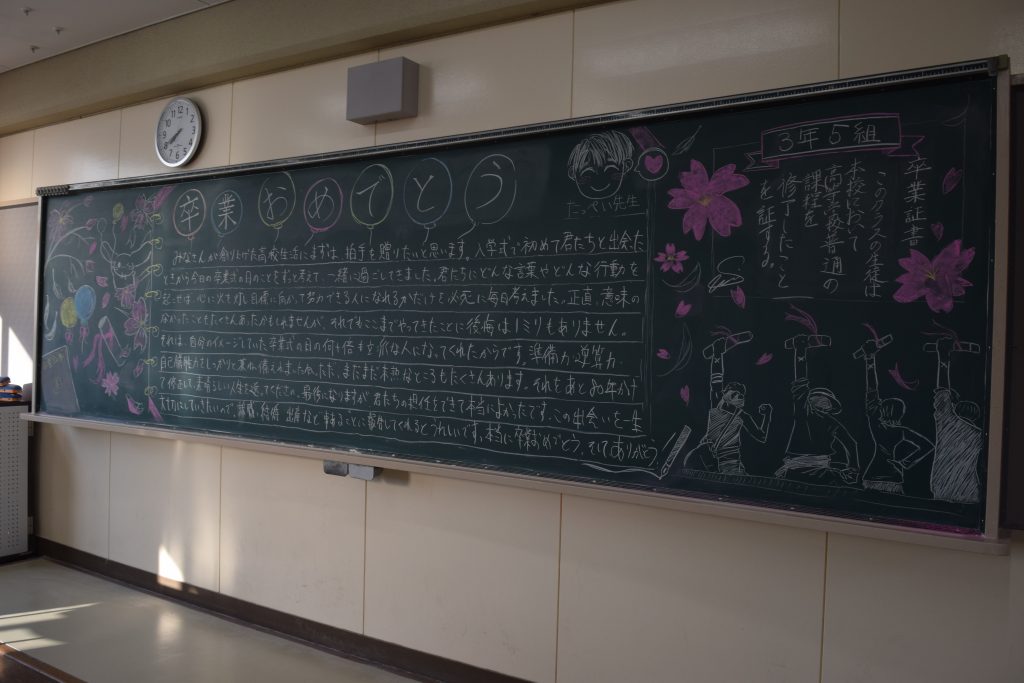 卒業おめでとう
たっぺい先生
みなさんが創り上げた高校生活にまずは、拍手を贈りたいと思います。入学式で初めて君たちと出会た
ときから今日の卒業式の日のことをずっと考えて、一緒に過ごしてきました。君たちにどんな言葉やどんな行動を
起せば、心に火を灯し目標に向かって努力できる人になれるかだけを必死に毎日考えました。正直、意味の
なかったこともたくさんあったかもしれませんが、それでもここまでやってきたことに後悔は1ミリもありません。
それは、自分のイメージしていた卒業式の日の何十倍も立派な人になってくれたからです。準備力、逆算力
自己犠牲力をしっかりと基に備えましたね。ただ、まだまだ未熟なところもたくさんあります。それをあと
て修正して、素晴らしい人生を送ってください。最後になりますが、君たちの担任をできて本当によかったです。この出会いを一生
大切にしていきたいので、就職、結婚、出産など事あるごとに報告してくれるとうれしいです。本当に卒業おめでとう。そしてありがとう
3年5組
卒業証書
このクラスの生徒は
本校において
高等学校普通の
課程を
修了したこと
を証する。
12
11
10
9
8
7
6
5
4
3
2
1